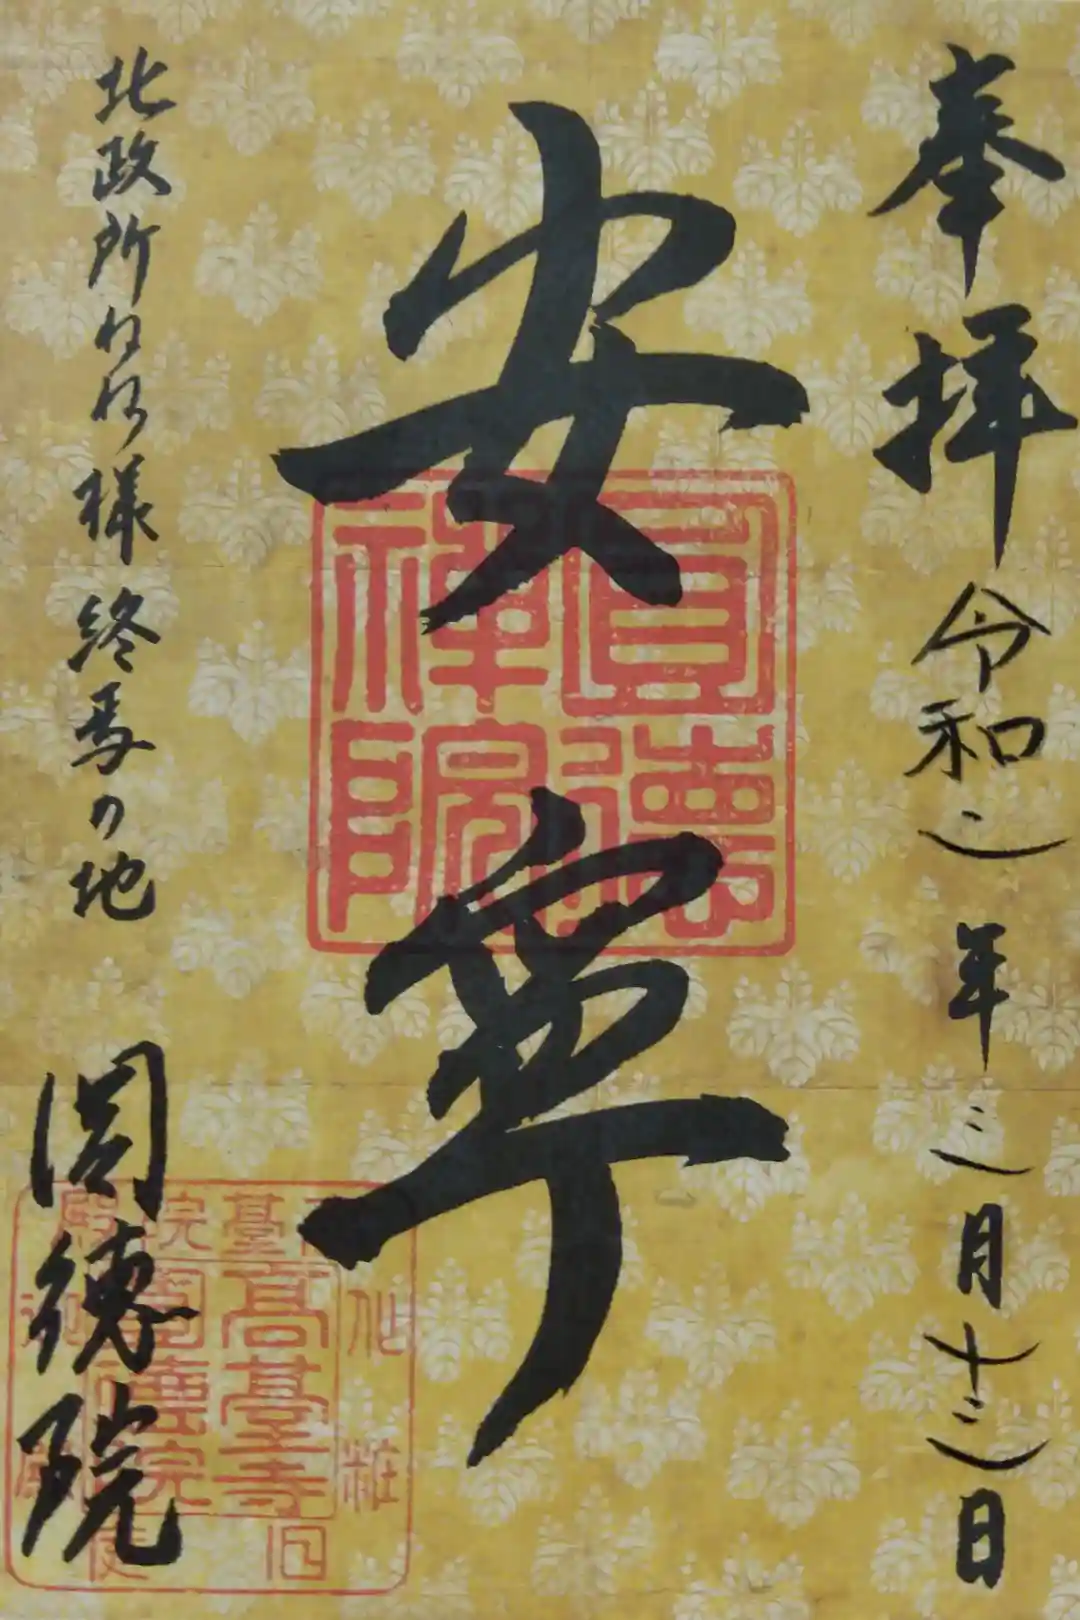 奉拝 令和二年三月十三日
安寧
圓德禪院
北政所ねね様 終焉の地
圓徳院
高臺寺